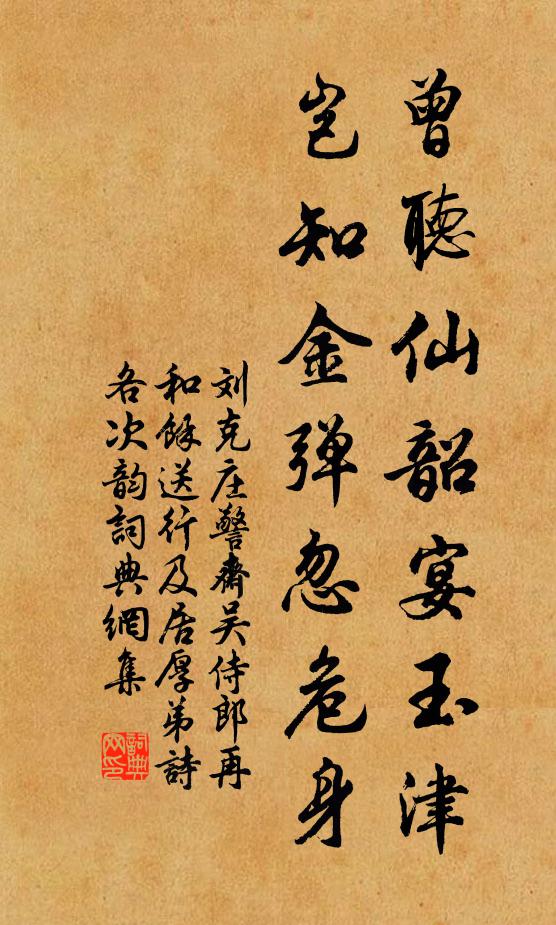 曾聽仙韶宴玉津
岂知金弹忽危身
刘克庄警齋吴侍郎再
和餘送行及居厚弟詩
各次韵詞典網集
詞典網印